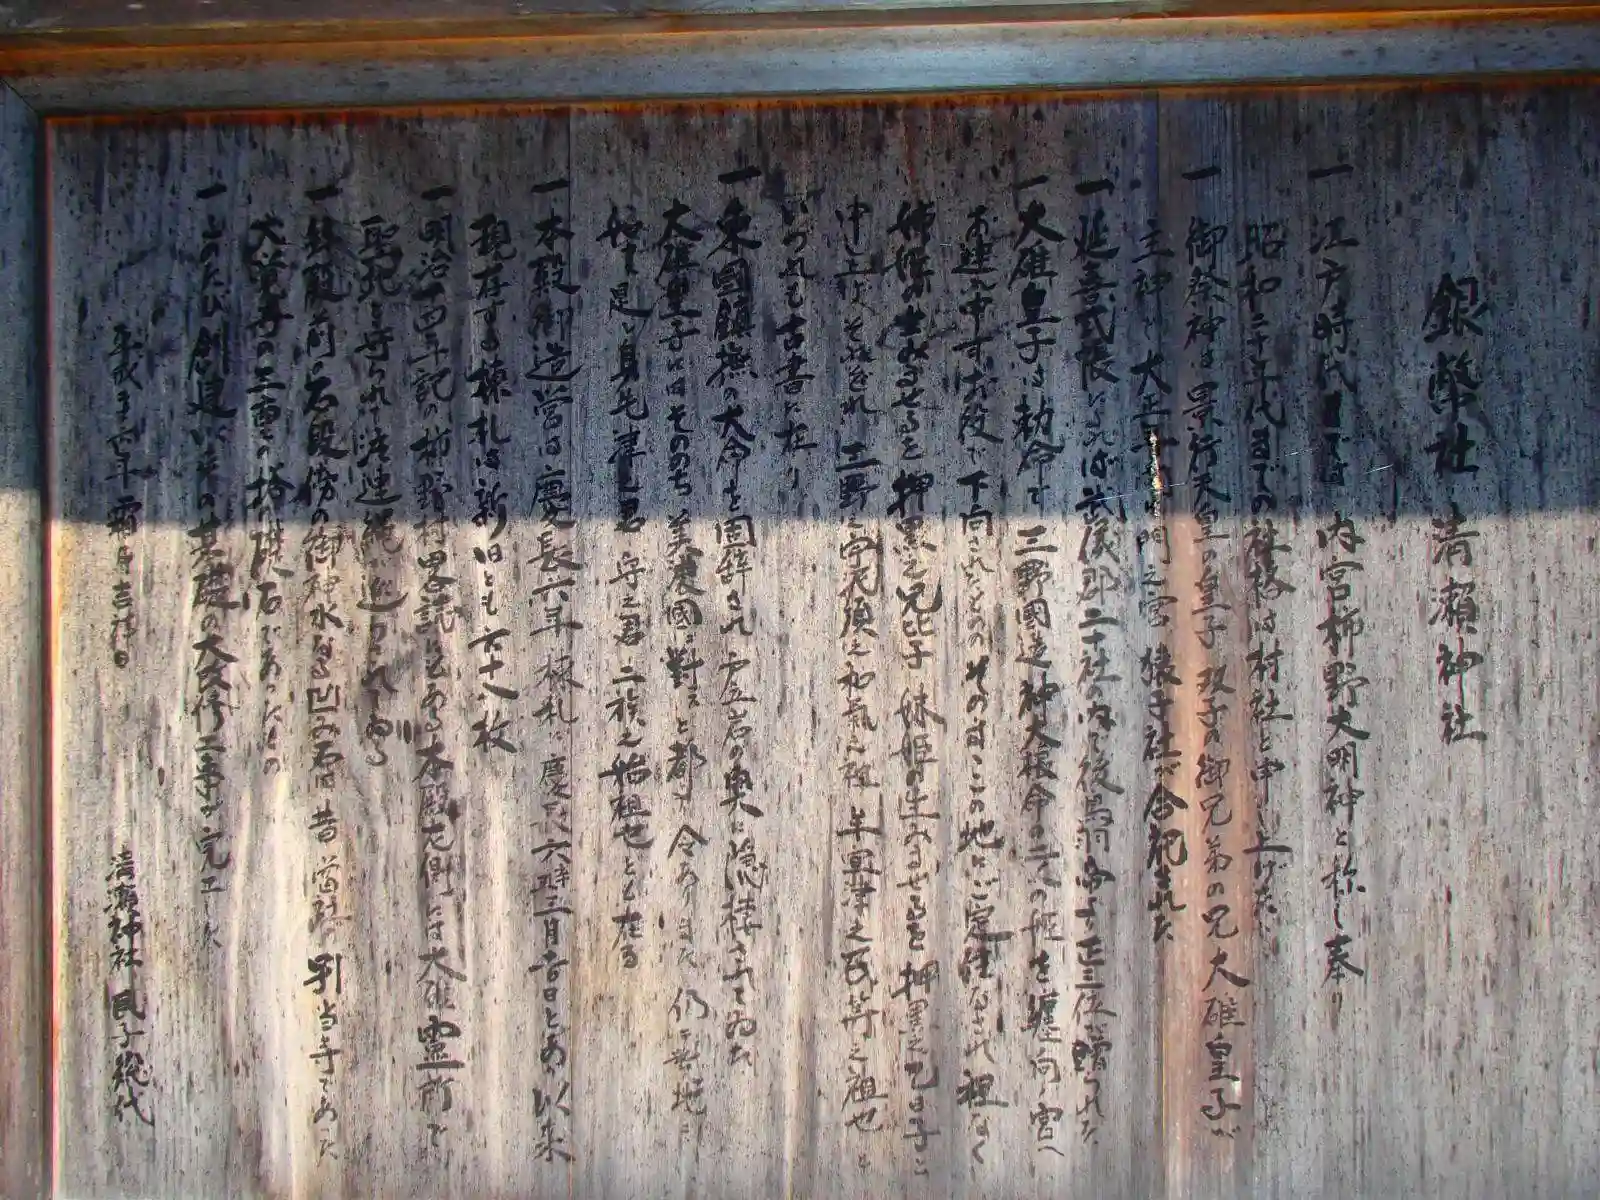 銀幣社 清瀬神社
一 江戸時代までは 内宮柿野大明神と称し奉り
昭和二十年代までの社格は村社と申し上げた
一 御祭神は景行天皇の皇子 双子の御兄弟の兄 大碓皇子が
主神で 大正年間 門之宮 猿子社が合祀された
一 延喜式帳によれば武儀郡二十社の内で後鳥羽帝より正三位が贈られた
一 大碓皇子は勅命で 三野國造神大根命の二人の姫を纏向の宮へ
お連れ申す お役で下向されたものの そのまゝこの地にご定住なされ 程なく
姉姫の生みまさせるを押黒之兄比子 妹姫の生みまさせるを押黒之乙日子と
申し上げ それぞれ 三野之宇泥須之和氣之祖 牟冝津之君等之祖也と
いづれも古書に在り
一 東國鎮撫の大命を固辞され 戸立岩の奥に隠棲されてゐた
大碓皇子にはそののち 美濃國に封ぜと都より令ありました 仍て此地に
始て是 身毛津之君 守之君 二族之始祖也とも在る
一 本殿御造営は慶長六年 棟札に慶長六 三月吉日とあり 以来
現存する棟札は新旧とも六十八枚
一 明治十四年記の柿野村略誌にもある 本殿左側には大碓霊所で
聖地と守られて注連縄が巡らされてゐる
一 拝殿前の石段傍の御神水なる凹み石は昔 当時 別当寺であった
大蔵寺の三重の塔の礎石であったもの
一 このたび創建以来の基礎の大改修工事が完工した
平成 年 霜月吉祥日
清瀬神社 氏子総代